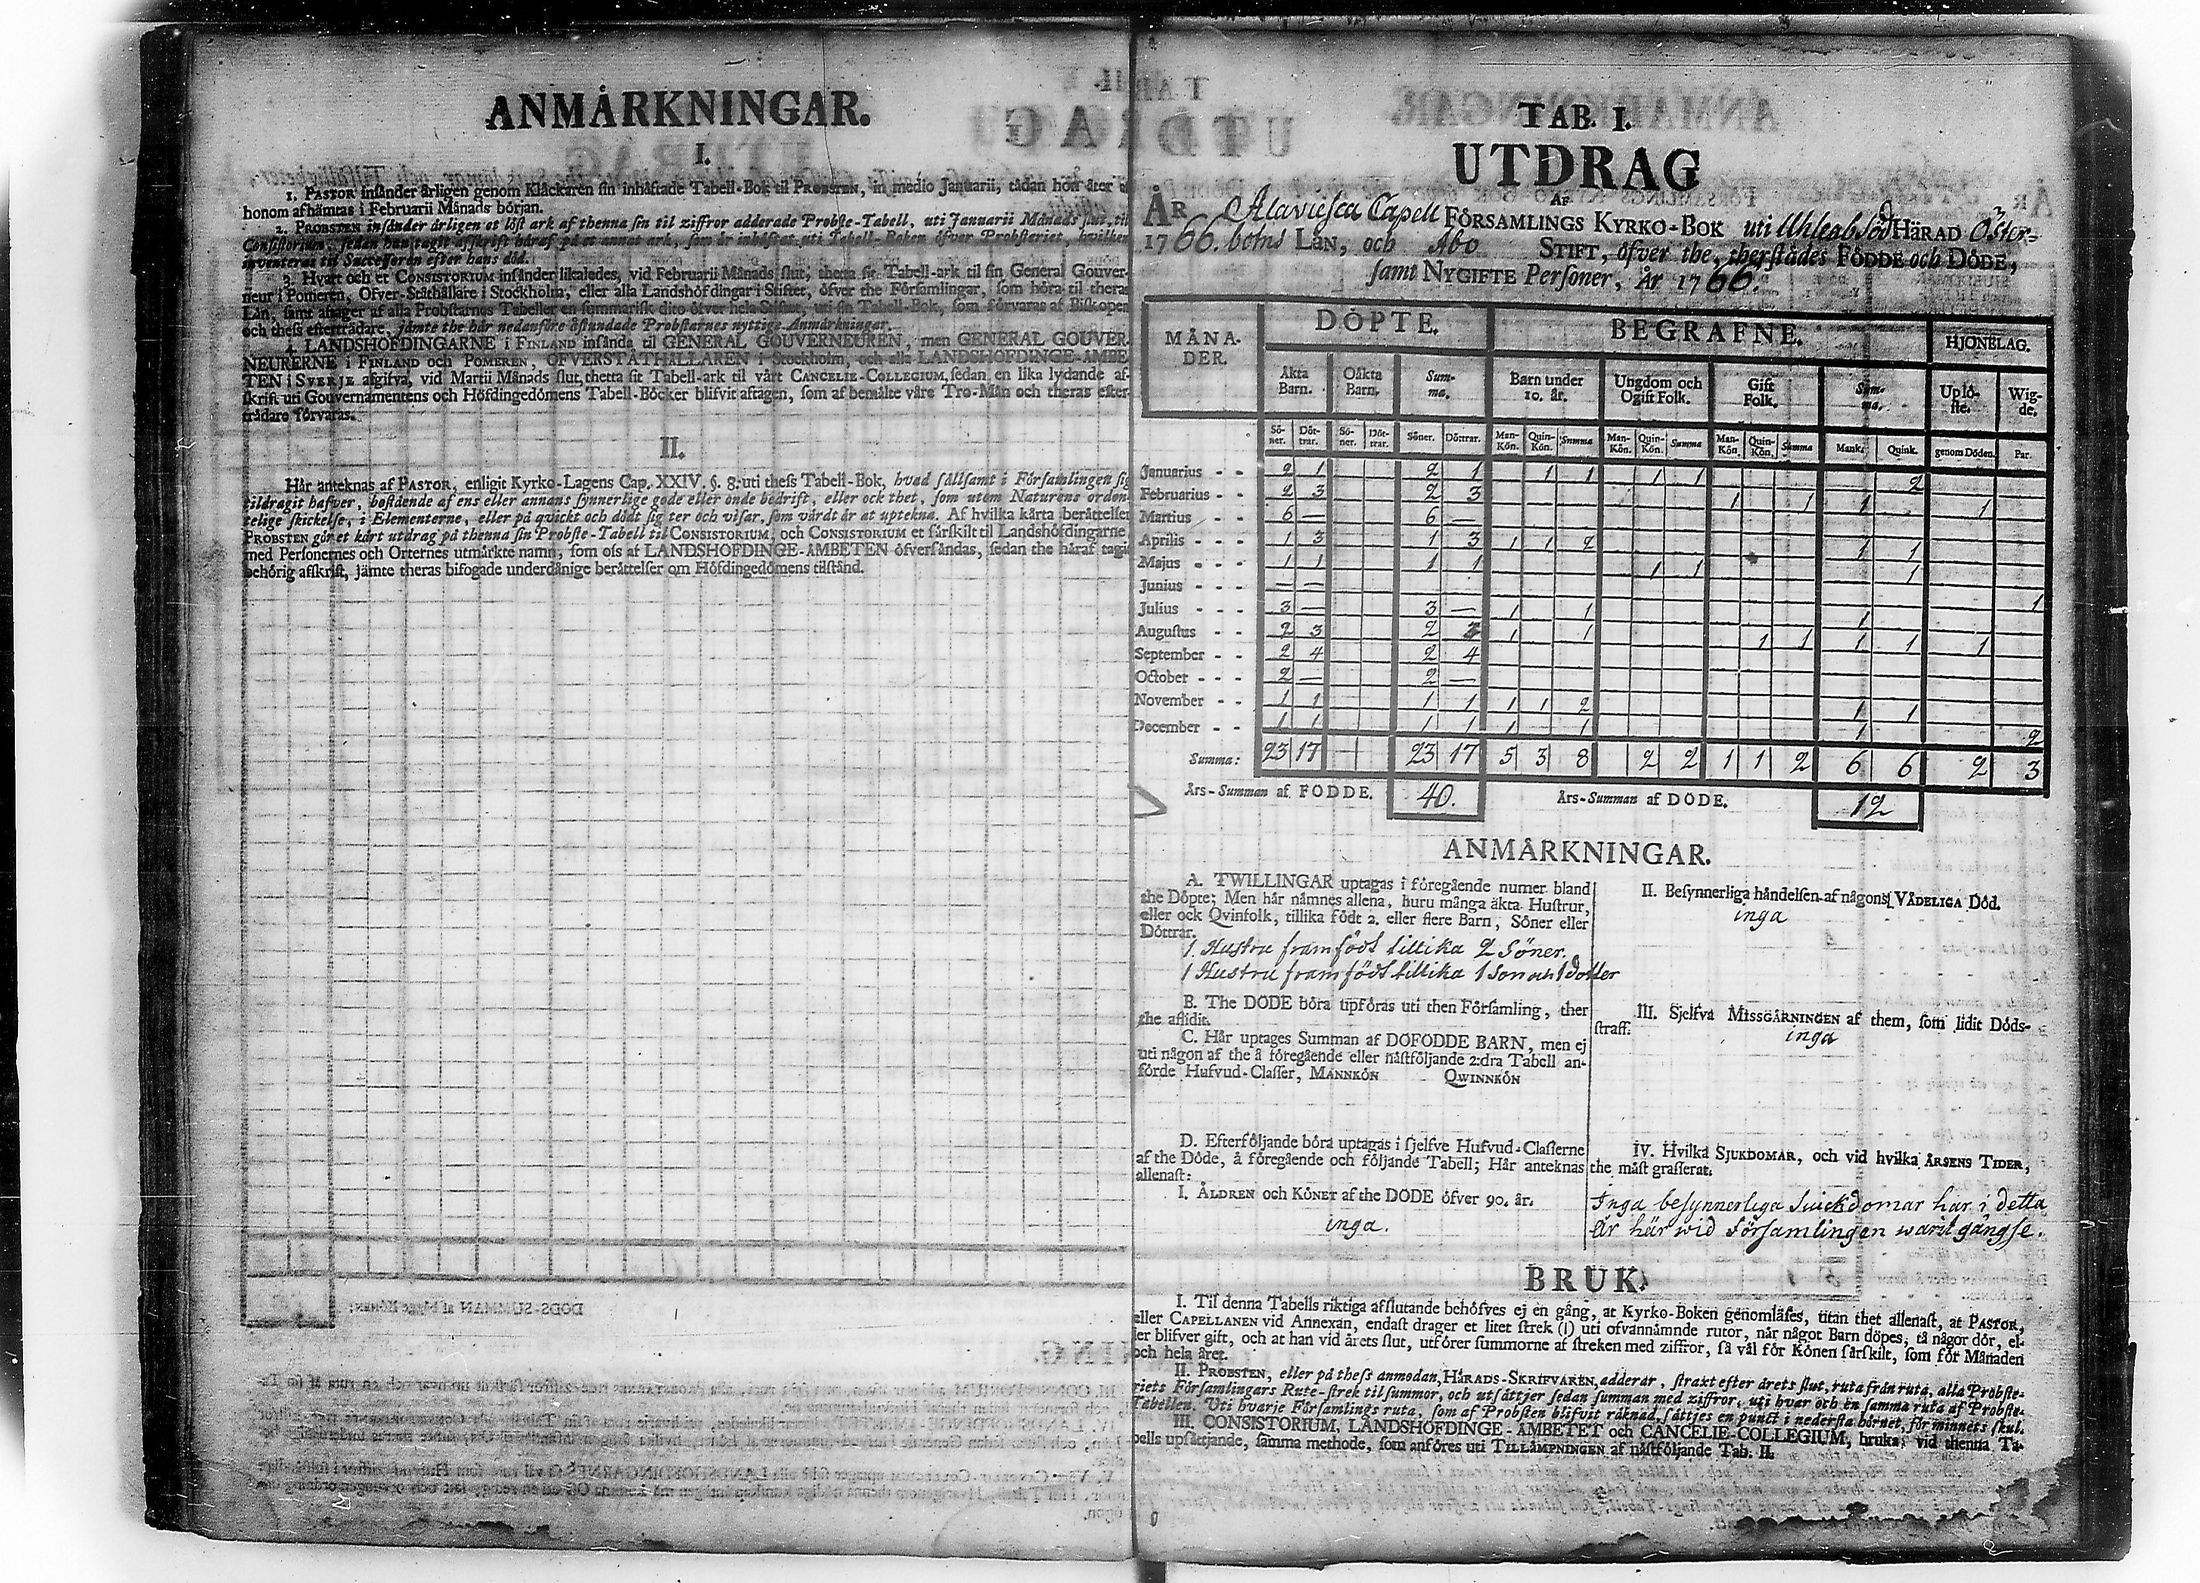 ANMÄRKNINGAR.
I.
1. PASTOR insänder årligen genom Klåckaren sin inhäftade Tabell-Bok til PROBSTEN, in medio Januarii, tådan hon åter af
honom afhämtas i Februarii Månads början.
2. PROBSTEN insänder årligen et löst ark af thenna sin til ziffror adderade Probste-Tabell, uti Januarii Månads slut, til
Consistorium, sedan han tagit afskrift häraf på et annat ark, som är inhäftat uti Tabell-Boken öfver Probsteriet, hvilken
inventeras til Successoren efter hans död.
3. Hvart och et CONSISTORIUM insänder likaledes, vid Februarii Månads slut, thetta sit Tabell-ark til sin General Gouver-
neur i Pomeren, Öfver-Ståthållare i Stockholm, eller alla Landshöfdingar i Stiftet, öfver the Församlingar, som höra til theras
Län, samt aftager af alla Probstarnes Tabeller en summarisk dito öfver hela Stiftet, uti sin Tabell-Bok, som förvaras af Biskopen
och thess efterträdare, jämte the här nedanföre åstundade Probstarnes nyttige Anmärkningar.
4. LANDSHÖFDINGARNE i FINLAND insända til GENERAL GOUVERNEUREN, men GENERAL GOUVER-
NEURERNE i FINLAND och POMEREN, ÖFVERSTÅTHÅLLAREN i Stockholm, och alla LANDSHÖFDINGE-ÄMBE-
TEN i SVERJE afgifva, vid Martii Månads slut, thetta sit Tabell-ark til vårt CANCELIE-COLLEGIUM, sedan en lika lydande af-
skrift uti Gouvernamentens och Höfdingedömens Tabell-Böcker blifvit aftagen, som af bemälte våre Tro-Män och theras efter-
trädare förvaras.
II.
Här anteknas af PASTOR, enligit Kyrko-Lagens Cap. XXIV. §. 8. uti thess Tabell-Bok, hvad sällsamt i Församlingen sig
tildragit hafver, bestående af ens eller annans synnerlige gode eller onde bedrift, eller ock thet, som utom Naturens orden-
telige skickelse, i Elementerne, eller på qvickt och dödt sig ter och visar, som värdt är at uptekna. Af hvilka korta berättelser
PROBSTEN gör et kort utdrag på thenna sin Probste-Tabell til CONSISTORIUM, et CONSISTORIUM et särskilt til Landshöfdingarne,
med Personernes och Orternes utmärkte namn, som oss af LANDSHÖFDINGE-ÄMBETEN öfversändas, sedan the häraf tagit
behörig afskrift, jämte theras bifogade underdånige berättelser om Höfdingedömens tilstånd.
TAB. I.
UTDRAG
AF
ÅR Alaviesca Capell FÖRSAMLINGS KYRKO-BOK uti Uhleabs HÄRAD Öster=
1766. botns LÄN, och Åbo STIFT, öfver the, therstädes FÖDDE och DÖDE,
samt NYGIFTE Personer, År 1766.
MÅNA-DER. DÖPTE. BEGRAFNE. HJONELAG.
Äkta Barn. Oäkta Barn. Summa. Barn under 10. år. Ungdom och Ogift Folk. Gift Folk. Summa. Uplöste. Wigde.
Söner. Döttrar. Söner. Döttrar. Söner. Döttrar. Man-Kön. Quin-Kön. Summa Man-Kön. Quin-Kön. Summa Man-Kön. Quin-Kön. Summa Mank. Quink. genom Döden. Par.
Januarius - - 2 1 2 1 1 1 1 1 2
Februarius - - 2 3 2 3 1 1 1 1
Martius - - 6 — 6 —
Aprilis - - - 1 3 1 3 1 1 2 1 1
Majus - - - 1 1 1 1 1 1 1
Junius - - - — —
Julius - - - 3 — 3 — 1 1 1 1
Augustus - - 2 3 2 3 1 1 1 1 1 1 1
September - - 2 4 2 4
October - - - 2 — 2 —
November - - 1 1 1 1 1 1 2 1 1
December - - 1 1 1 1 1 1 1 2
Summa: 23 17 23 17 5 3 8 2 2 1 1 2 6 6 2 3
Års-Summan af FÖDDE. 40. Års-Summan af DÖDE. 12
ANMÄRKNINGAR.
A. TWILLINGAR uptagas i föregående numer bland
the Döpte; Men här nämnes allena, huru många äkta Hustrur,
eller ock Qvinfolk, tillika födt 2. eller flere Barn, Söner eller
Döttrar.
1. Hustru framfödt tillika 2 Söner.
1 Hustru framfödt tillika 1 son och 1 dotter
B. The DÖDE böra upföras uti then Församling, ther
the aflidit.
C. Här uptages Summan af DÖFÖDDE BARN, men ej
uti någon af the å föregående eller nästföljande 2:dra Tabell an-
förde Hufvud-Classer, MANNKÖN QWINNKÖN
D. Efterföljande böra uptagas i sjelfve Hufvud-Classerne
af the Döde, å föregående och följande Tabell; Här anteknas
allenast:
I. ÅLDREN och KÖNET af the DÖDE öfver 90. år.
inga.
II. Besynnerliga händelsen af någons VÅDELIGA Död.
inga
III. Sjelfva MISSGÄRNINGEN af them, som lidit Döds-
straff.
inga
IV. Hvilka SJUKDOMAR, och vid hvilka ÅRSENS TIDER,
the mäst grasserat.
Inga besynnerliga Siuckdomar har i detta
År här wid Församlingen warit gångse.
BRUK.
I. Til denna Tabells riktiga afslutande behöfves ej en gång, at Kyrko-Boken genomläses, utan thet allenast, at PASTOR,
eller CAPELLANEN vid Annexan, endast drager et litet strek (|) uti ofvannämnde rutor, när något Barn döpes, tå någor dör, el-
ler blifver gift, och at han vid årets slut, utförer summorne af streken med ziffror, så väl för Könen särskilt, som för Månaden
och hela året.
II. PROBSTEN, eller på thess anmodan, HÄRADS-SKRIFVAREN, adderar, strakt efter årets slut, ruta från ruta, alla Probste-
riets Församlingars Rute-strek til summor, och utsättjer sedan summan med ziffror, uti hvar och en samma ruta af Probste-
Tabellen. Uti hvarje Församlings ruta, som af Probsten blifvit räknad, sättjes en punct i nedersta hörnet, för minnets skul.
III. CONSISTORIUM, LANDSHÖFDINGE-ÄMBETET och CANCELIE-COLLEGIUM, bruka, vid thenna Ta-
bells upsättjande, samma methode, som anföres uti TILLÄMPNINGEN af nästföljande Tab. II.